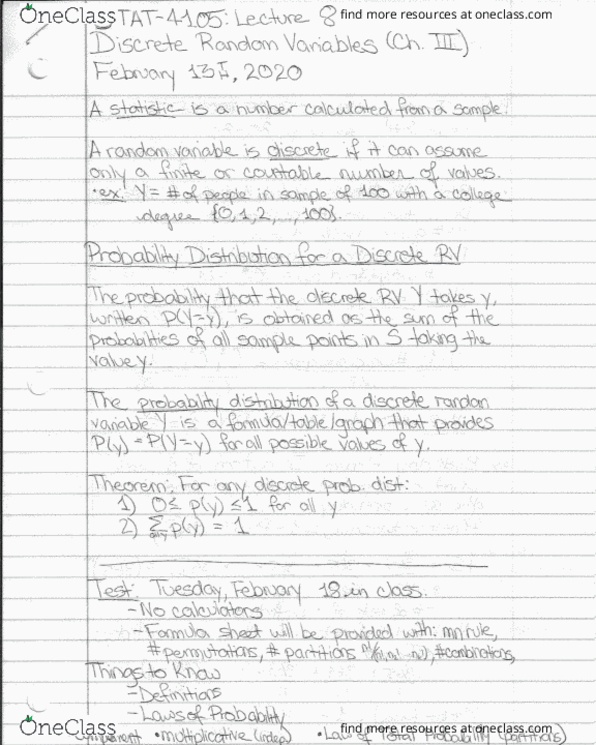 OneClass
STAT-4105: Lecture 8
find more resources at oneclass.com
Discrete Random Variables (Ch. III)
February 13th, 2020
A statistic is a number calculated from a sample.
A random variable is discrete if it can assume
only a finite or countable number of values.
• ex: Y = # of people in sample of 100 with a college
degree {0,1,2,...,100}.
Probability Distribution for a Discrete RV
The probability that the discrete RV Y takes y,
written P(Y=y), is obtained as the sum of the
probabilities of all sample points in S taking the
value y.
The probability distribution of a discrete random
variable Y is a formula/table/graph that provides
P(y) = P(Y=y) for all possible values of y.
Theorem: For any discrete prob. dist:
1) 0 ≤ p(y) ≤ 1 for all y
2) Σ p(y) = 1
Test: Tuesday, February 18 in class.
- No calculators
- Formula sheet will be provided with: mn rule,
# permutations, # partitions #combinations,
Things to Know
- Definitions
- Laws of Probability
OneClass
find more resources at oneclass.com
• multiplicative (indep) • Law of Total Probability (partitions)